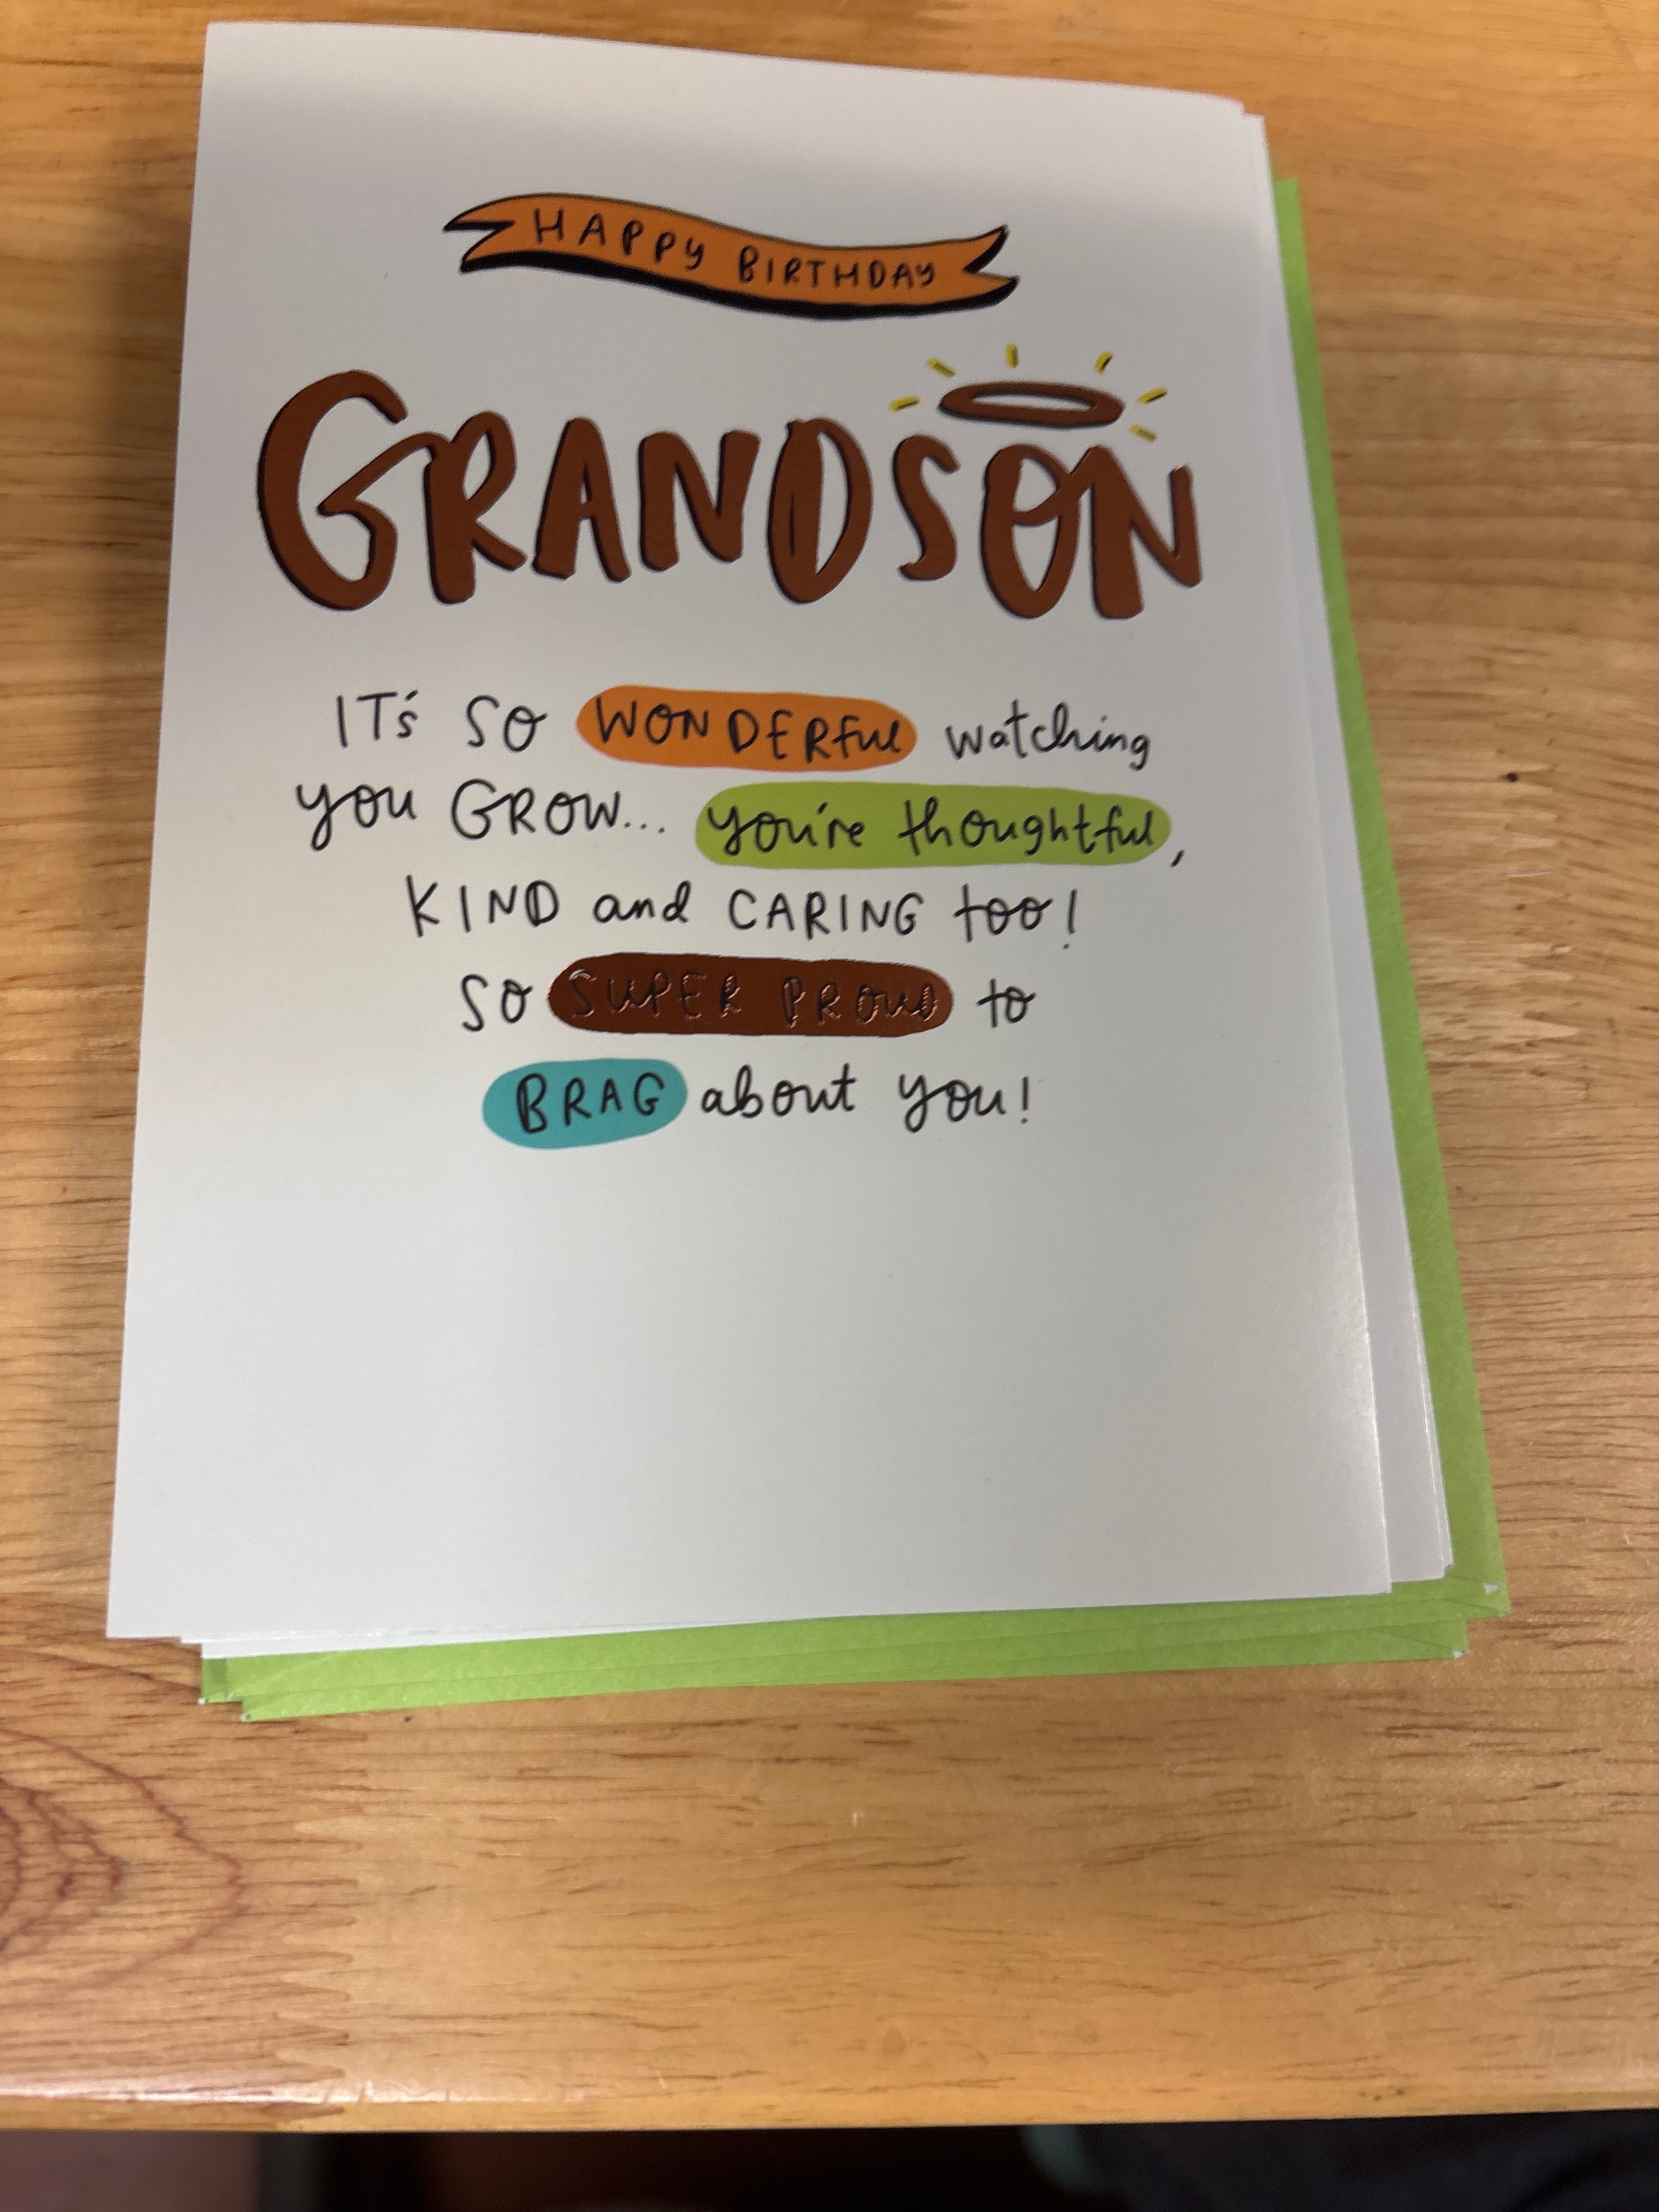 HAPPY BIRTHDAY
GRANDSON
IT'S SO WONDERful watching
you GROW... you're thoughtful,
KIND and CARING too!
SO SUPER PROUD to
BRAG about you!